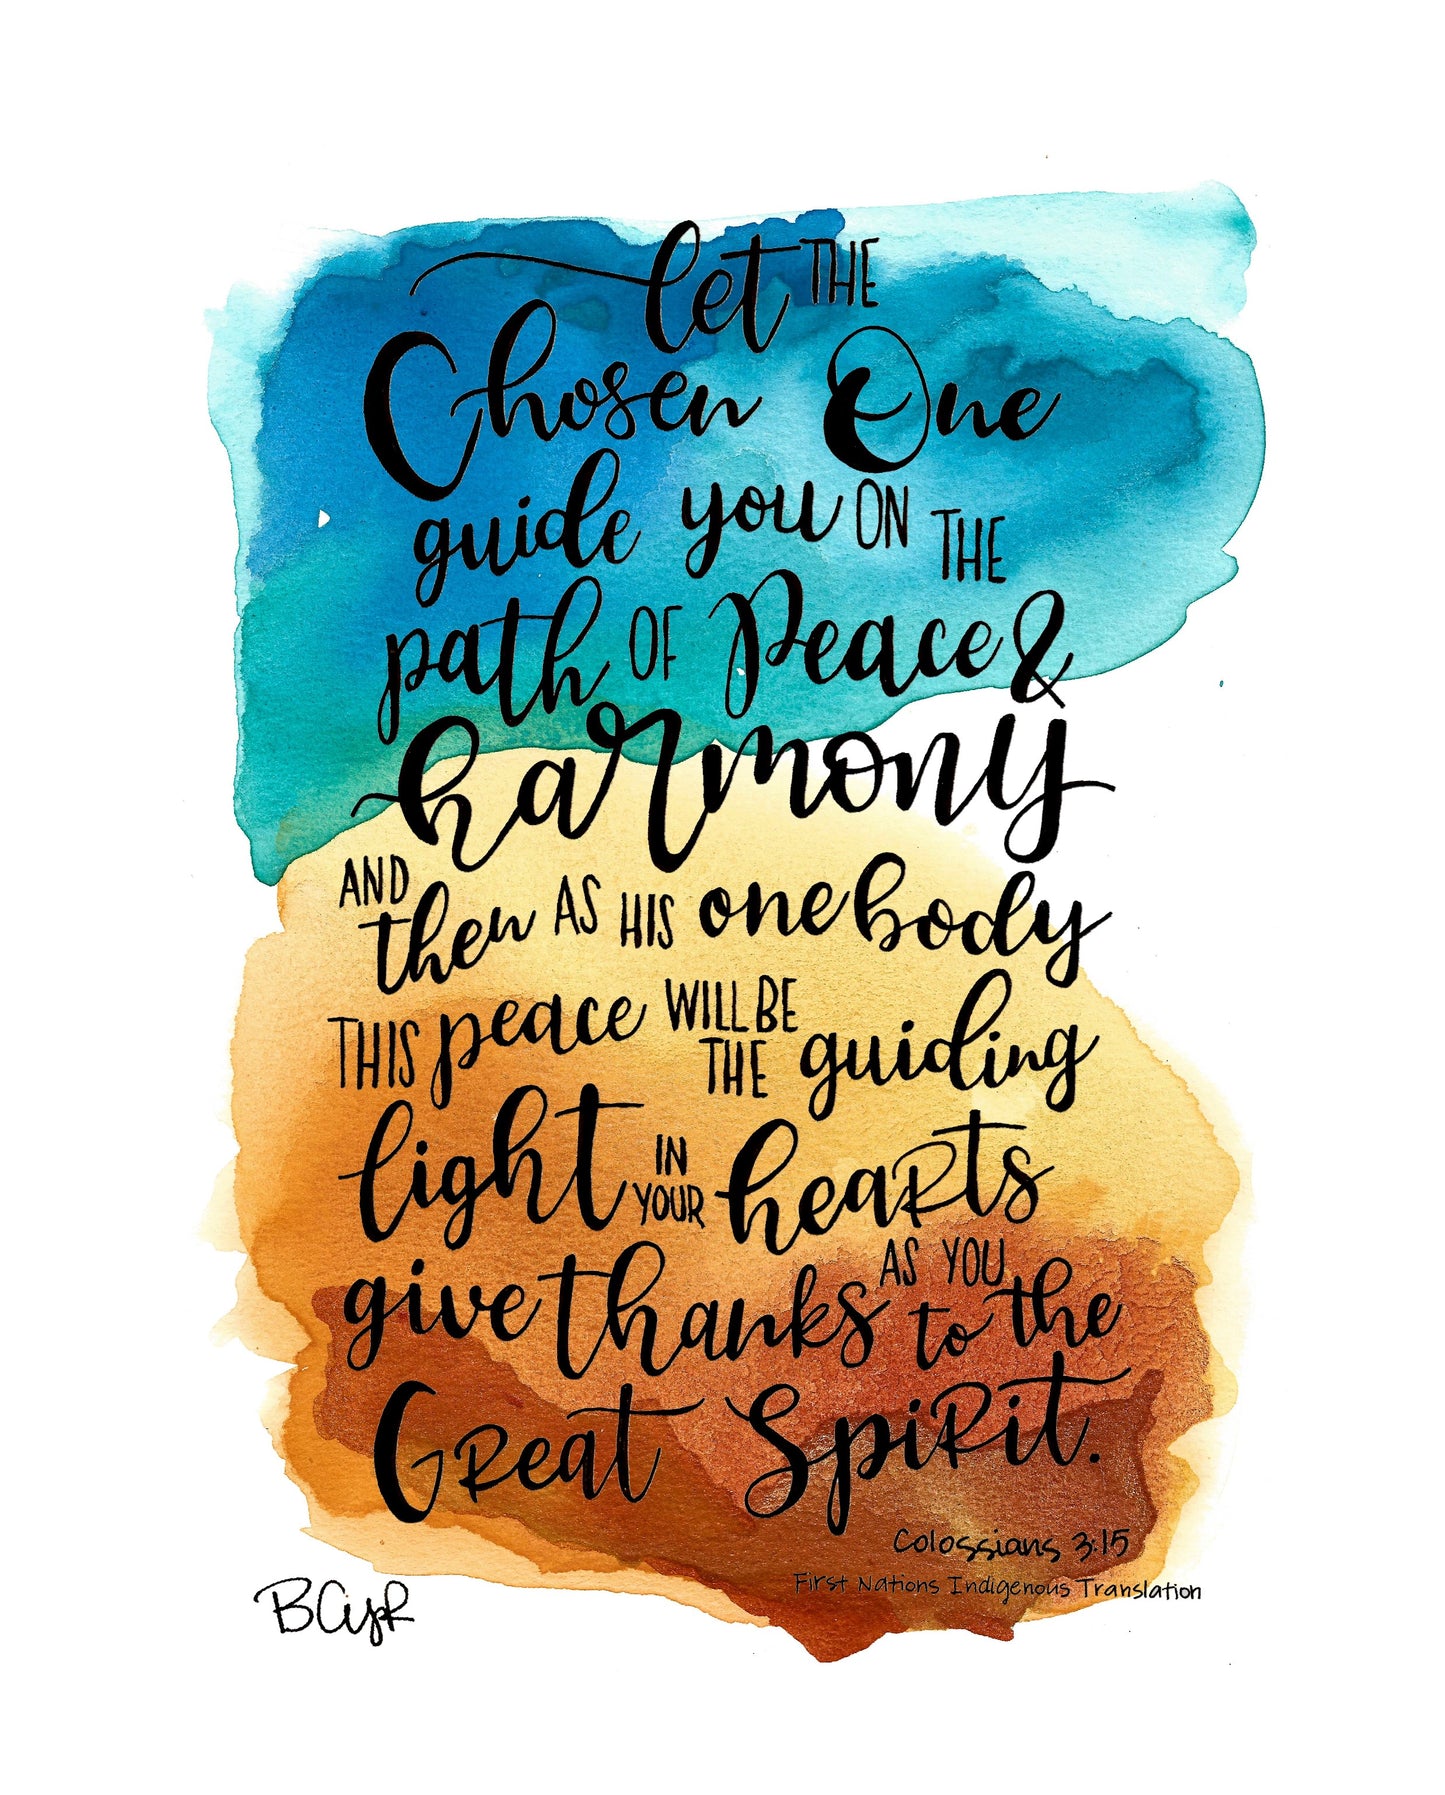 let THE
Chosen One
guide you ON THE
path OF Peace &
harmony
AND then AS HIS one body
THIS peace WILL BE THE guiding
light IN YOUR hearts
give thanks AS YOU to the
Great Spirit.
Colossians 3:15
First Nations Indigenous Translation
BCyR